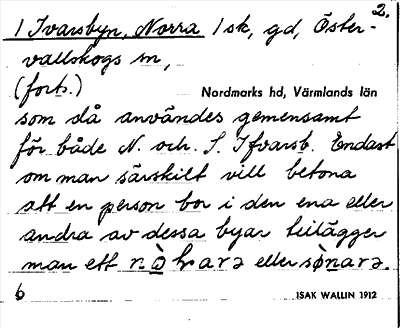 2.
1 Ivarsbyn, Norra 1 sk, gd, Öster-
vallskogs sn,
(forts.) Nordmarks hd, Värmlands län
som då användes gemensamt
för både N. och. S. Ifvarsb. Endast
om man särskilt vill betona
att en person bor i den ena eller
andra av dessa byar tillägger
man ett eller
6 ISAK WALLIN 1912